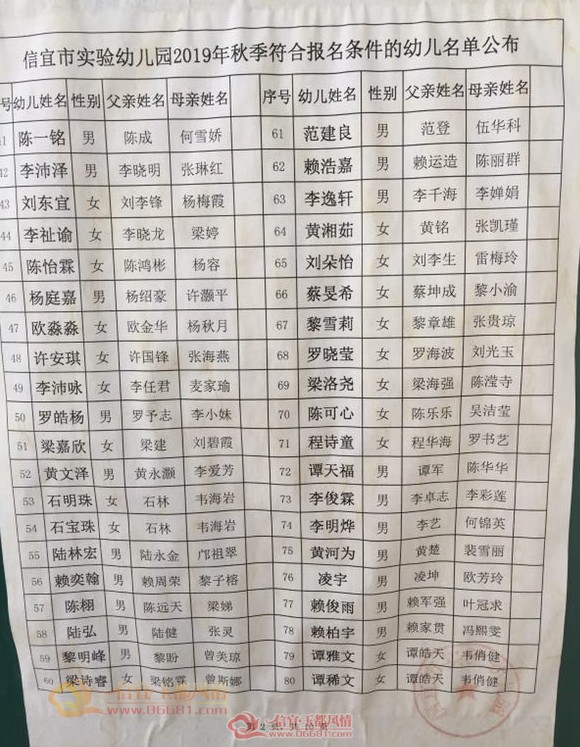 信宜市实验幼儿园2019年秋季符合报名条件的幼儿名单公布
号 幼儿姓名 性别 父亲姓名 母亲姓名 序号 幼儿姓名 性别 父亲姓名 母亲姓名
41 陈一铭 男 陈成 何雪娇 61 范建良 男 范登 伍华科
42 李沛泽 男 李晓明 张琳红 62 赖浩嘉 男 赖运造 陈丽群
43 刘东宜 女 刘李锋 杨梅霞 63 李逸轩 男 李千海 李婵娟
44 李祉谕 女 李晓龙 梁婷 64 黄湘茹 女 黄铭 张凯瑾
45 陈怡霖 女 陈鸿彬 杨容 65 刘朵怡 女 刘李生 雷梅玲
46 杨庭嘉 男 杨绍豪 许灏平 66 蔡旻希 女 蔡坤成 黎小渝
47 欧淼淼 女 欧金华 杨秋月 67 黎雪莉 女 黎章雄 张贵琼
48 许安琪 女 许国锋 张海燕 68 罗晓莹 女 罗海波 刘光玉
49 李沛咏 女 李任君 麦家瑜 69 梁洛尧 女 梁海强 陈滢寺
50 罗皓杨 男 罗予志 李小妹 70 陈可心 女 陈乐乐 吴洁莹
51 梁嘉欣 女 梁建 刘碧霞 71 程诗童 女 程华海 罗书艺
52 黄文泽 男 黄永灏 李爱芳 72 谭天福 男 谭军 陈华华
53 石明珠 女 石林 韦海岩 73 李俊霖 男 李卓志 李彩莲
54 石宝珠 女 石林 韦海岩 74 李明烨 男 李艺 何锦英
55 陆林宏 男 陆永金 邝祖翠 75 黄河为 男 黄楚 裴雪丽
56 赖奕翰 男 赖周荣 黎子榕 76 凌宇 男 凌坤 欧芳玲
57 陈栩 男 陈远天 梁娣 77 赖俊雨 男 赖军强 叶冠求
58 陆弘 男 陆健 张灵 78 赖柏宇 男 赖家贯 冯熙雯
59 黎明峰 男 黎盼 曾美琼 79 谭雅文 女 谭皓天 韦俏健
60 梁诗睿 女 梁铭霖 曾斯娜 80 谭稀文 女 谭皓天 韦俏健
第 2 页 共 10 页
信宜·玉都风情
www.06681.com
信宜·玉都风情
www.06681.com